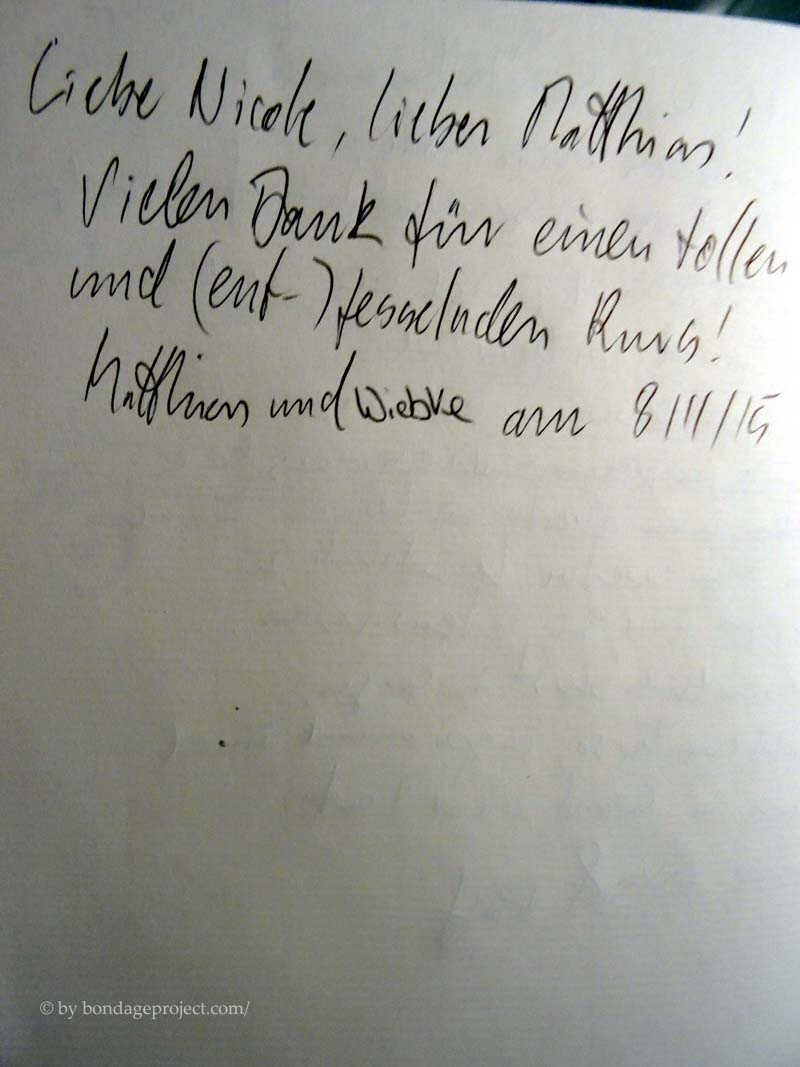 Liebe Nicole, lieber Matthias!
Vielen Dank für einen tollen
und (ent-) fesselnden Kurs!
Matthias und Wiebke am 8/11/15
© by bondageproject.com/